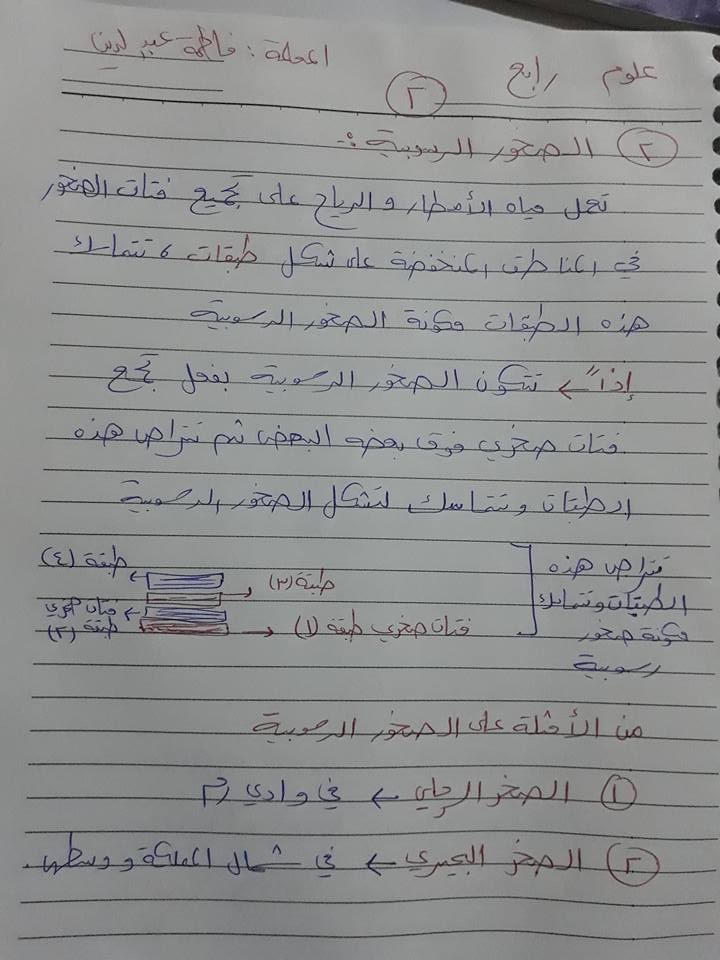 علوم رابع
المعلمة : فاطمة عبير لدين
٢
٢ الصخور الرسوبية :-
تعمل مياه الأمطار و الرياح على تجميع فتات الصخور
في المناطق المنخفضة على شكل طبقات ، تتماسك
هذه الطبقات مكونة الصخور الرسوبية
إذاً ← تتكون الصخور الرسوبية بفعل تجمع
فتات صخري فوق بعضه البعض ثم تتراص هذه
الطبقات وتتماسك لتشكل الصخور الرسوبية
تتراص هذه
الطبقات وتتماسك
مكونة صخور
رسوبية
طبقة (٤)
طبقة (٣)
فتات صخري
طبقة (٢)
فتات صخري طبقة (١)
من الأمثلة على الصخور الرسوبية
١ الصخر الرملي ← في وادي رم
٢ الصخر الجيري ← في شمال المملكة ووسطها.